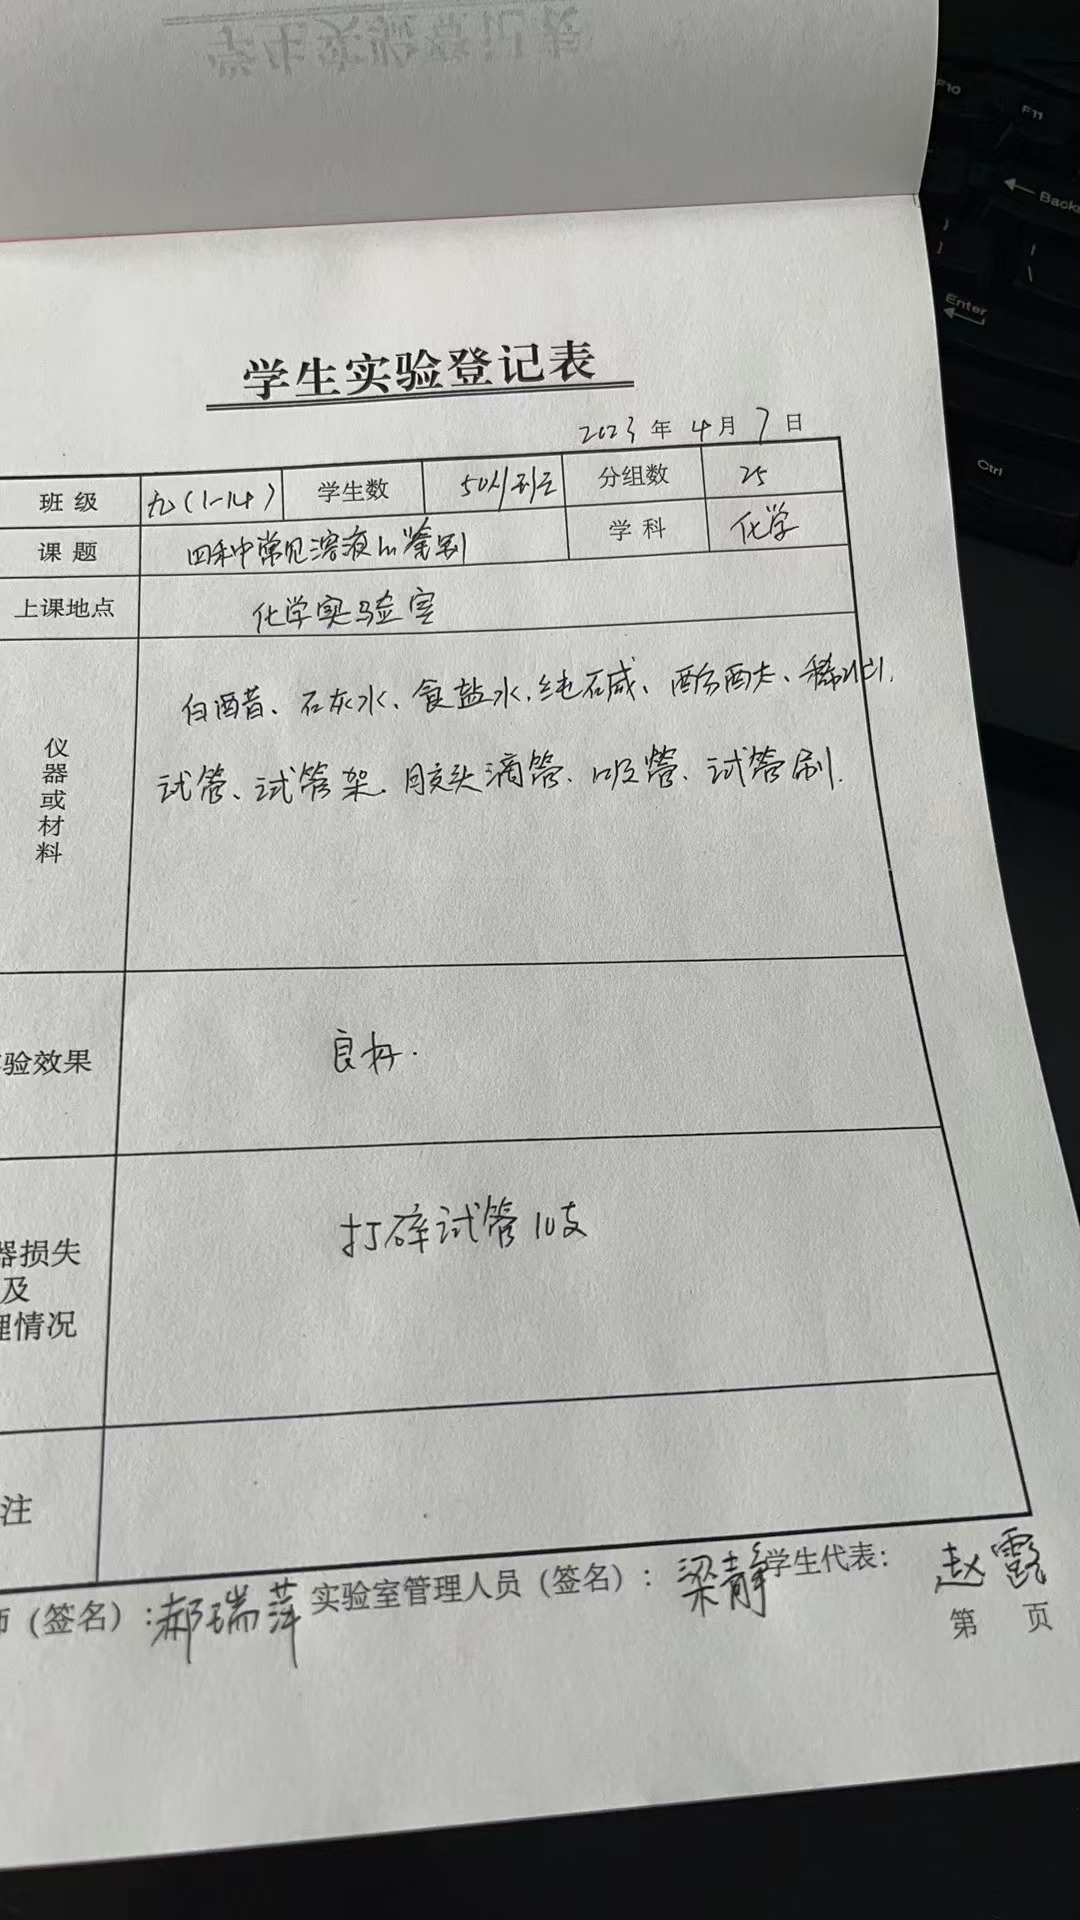 学生实验登记表
2023 年 4 月 7 日
班级 九(1-14) 学生数 50人/班 分组数 25
课题 四种常见溶液的鉴别 学科 化学
上课地点 化学实验室
仪器或材料
白醋、石灰水、食盐水、纯碱、酚酞、稀
试管、试管架、胶头滴管、吸管、试管刷.
验效果 良好.
器损失
及
理情况
打碎试管10支
注
师（签名）：郝瑞萍 实验室管理人员（签名）：梁静 学生代表： 赵露
第 页
F10
F11
Backs
Enter
Ctrl